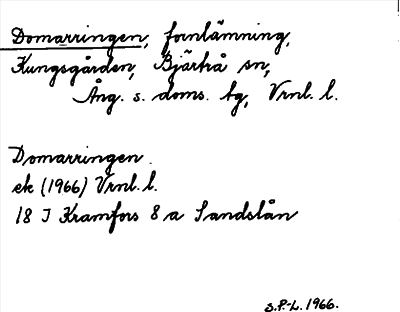 Domarringen, fornlämning,
Kungsgården, Bjärtrå sn,
Ång. s. doms. tg, Vrnl. l.
Domarringen
ek (1966) Vrnl. l.
18 J Kramfors 8 a Sandslån
S.P.-L. 1966.